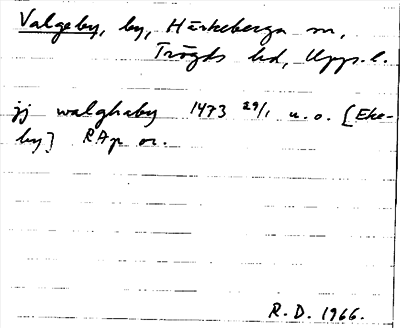 Valgeby, by, Härkeberga sn,
Trögds hd, Upps. l.
jj walghaby 1473 29/1 u. o. [Eke-
by] RAp or.
R. D. 1966.